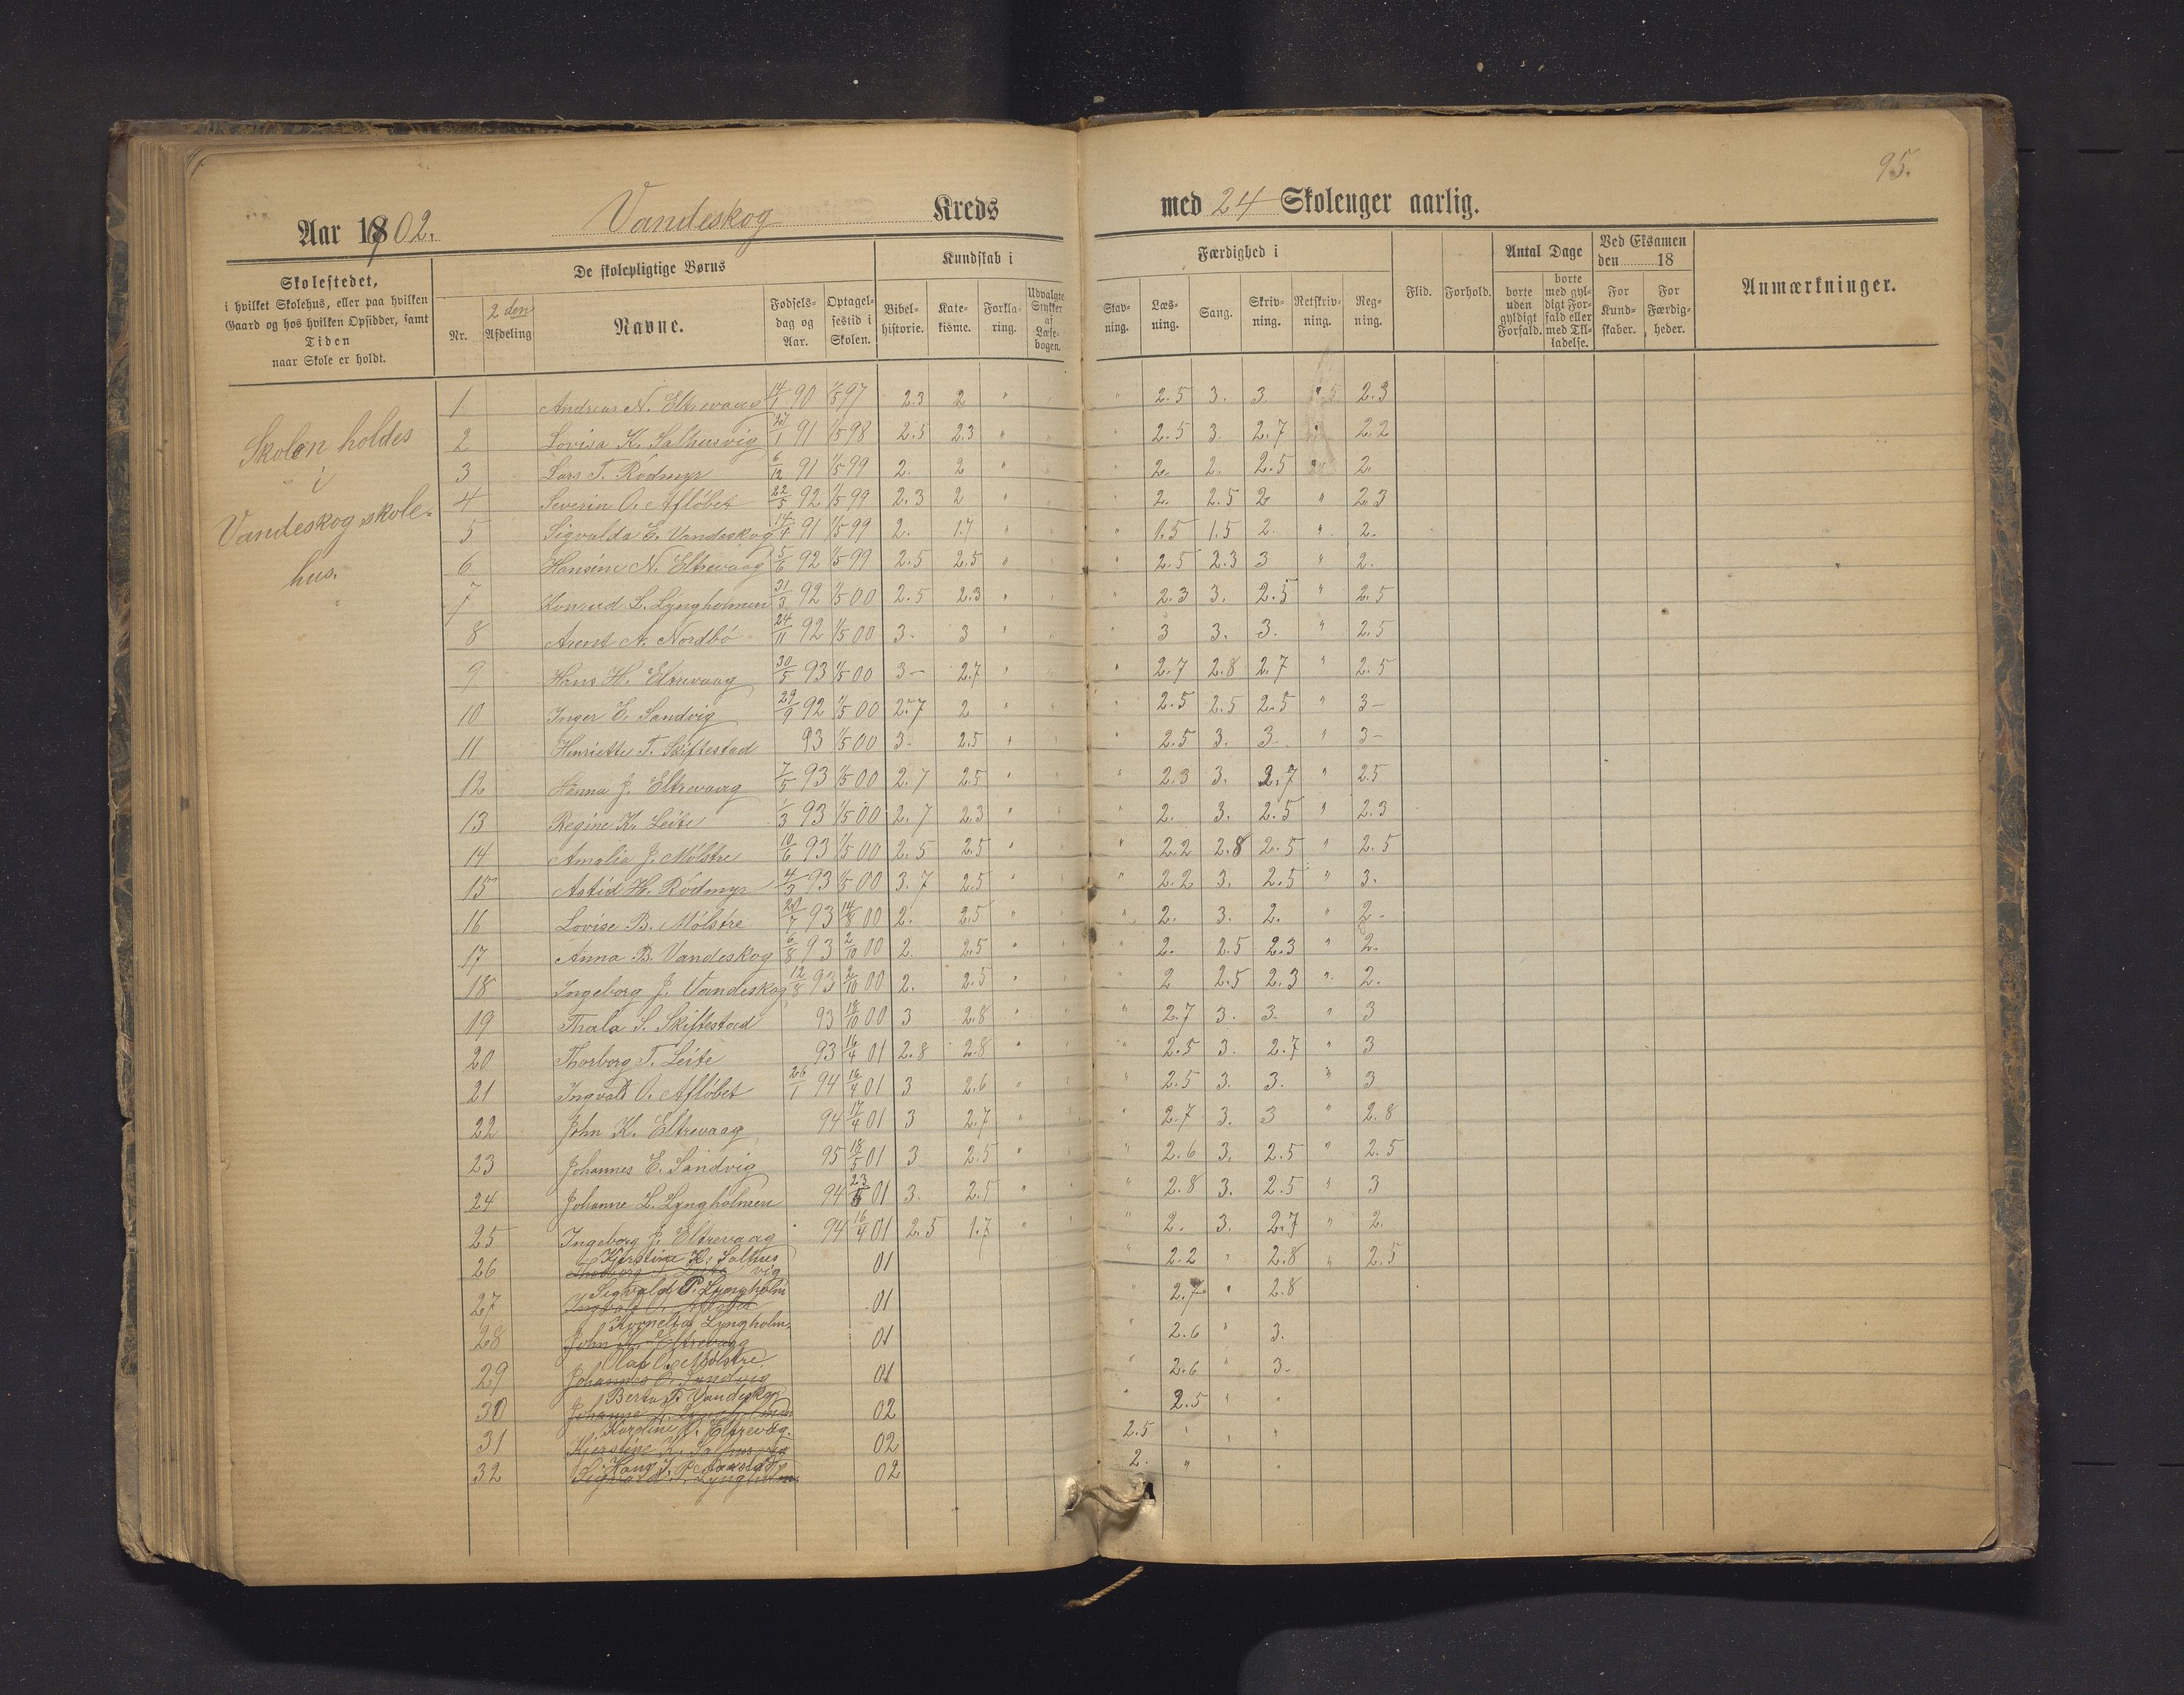 95.
Aar 1902. Vandeskog Kreds med 24 Skoleuger aarlig.
Skolestedet, i hvilket Skolehus, eller paa hvilken Gaard og hos hvilken Opsidder, samt Tiden naar Skole er holdt.
De skolepligtige Børns
Nr. 2den Afdeling Navne. Fødselsdag og Aar. Optagelsestid i Skolen.
Kundskab i
Bibelhistorie. Katekisme. Forklaring. Udvalgte Stykker af Læsebogen.
Færdighed i
Stavning. Læsning. Sang. Skrivning. Retskrivning. Regning.
Flid. Forhold.
Antal Dage
borte uden gyldigt Forfald. borte med gyldigt Forfald eller med Tilladelse.
Ved Eksamen den 18
For Kundskaber. For Færdigheder.
Anmærkninger.
Skolen holdes
i
Vandeskog skole-
hus.
1 Andreas N. Eltrevaag 14/1 90 1/5 97 2.3 2 " " 2.5 3. 3. 2.3
2 Lovisa K. Salhusvig 27/1 91 1/5 98 2.5 2.3 " " 2.5 3. 2.7 " 2.2
3 Lars T. Rödmyr 6/12 91 1/5 99 2. 2 " " 2. 2. 2.5 2.
4 Severin O. Aflöbet 22/5 92 1/5 99 2.3 2 " " 2. 2.5 2 " 2.3
5 Sigvalda E. Vandeskog 14/4 91 1/5 99 2. 1.7 " " 1.5 1.5 2. " 2.
6 Hansine N. Eltrevaag 5/6 92 1/5 99 2.5 2.5 " " 2.5 2.3 3 " 2.
7 Konrad L. Lyngholmen 31/3 92 1/5 00 2.5 2.3 " " 2.3 3. 2.5 " 2.5
8 Arent A. Nordbö 24/11 92 1/5 00 3. 3 " " 3 3. 3. " 2.5
9 Hans H. Eltrevaag 30/5 93 1/5 00 3 2.7 " " 2.7 2.8 2.7 " 2.5
10 Inger E. Sandvig 29/9 92 1/5 00 2.7 2 " " 2.5 2.5 2.5 " 3
11 Henriette T. Skiftestad 93 1/5 00 3. 2.5 " " 2.5 3. 3 " 3
12 Hanna J. Eltrevaag 7/5 93 1/5 00 2.7 2.5 " " 2.3 3. 2.7 " 2.5
13 Regine K. Leite 1/3 93 1/5 00 2.7 2.3 " " 2. 3. 2.5 " 2.3
14 Amalia J. Mölstre 10/6 93 1/5 00 2.5 2.5 " " 2.2 2.8 2.5 " 2.5
15 Astid H. Rödmyr 4/3 93 1/5 00 3.7 2.5 " " 2.2 3. 2.5 " 3.
16 Lovise B. Mölstre 20/7 93 14/8 00 2. 2.5 " " 2. 3. 2. " 2.
17 Anna B. Vandeskog 6/8 93 2/10 00 2. 2.5 " " 2. 2.5 2.3 " 2.
18 Ingeborg J. Vandeskog 12/8 93 2/10 00 2. 2.5 " " 2 2.5 2.3 " 2.
19 Thala S. Skiftestad 93 18/10 00 3 2.8 " " 2.7 3. 3. " 3
20 Thorborg T. Leite 93 16/4 01 2.8 2.8 " " 2.5 3. 2.7 " 3
21 Ingvald O. Aflöbet 26/1 94 16/4 01 3 2.6 " " 2.5 3. 3. " 3
22 John K. Eltrevaag 94 17/4 01 3 2.7 " " 2.7 3. 3 " 2.8
23 Johannes E. Sandvig 95 18/5 01 3 2.5 " " 2.6 3. 2.5 " 2.5
24 Johanne L. Lyngholmen 94 23/5 01 3. 2.5 " " 2.8 3. 2.5 " 3
25 Ingeborg J. Eltrevaag 94 16/4 01 2.5 1.7 " " 2. 3. 2.7 " 2.
26 Kjerstina K. Salhusvig Thorborg T. Leite 01 " 2.2 " 2.8 " 2.5
27 Sigvald P. Lyngholm Ingvald O. Aflöbet 01 2.7 " 2.8
28 Kornelia Lyngholm. John K. Eltrevaag 01 " 2.6 " 3.
29 Olaf O. Mölstre. Johannes E. Sandvig 01 " 2.6 " 3.
30 Berta B. Vandeskog Johanne L. Lyngholmen 02 " 2.5 " "
31 Karoline O. Eltrevåg. Kjerstine K. Salhusvig 02 2.5 " " "
32 Hans J. Sigvald P. Lyngholm. 02 2. " "